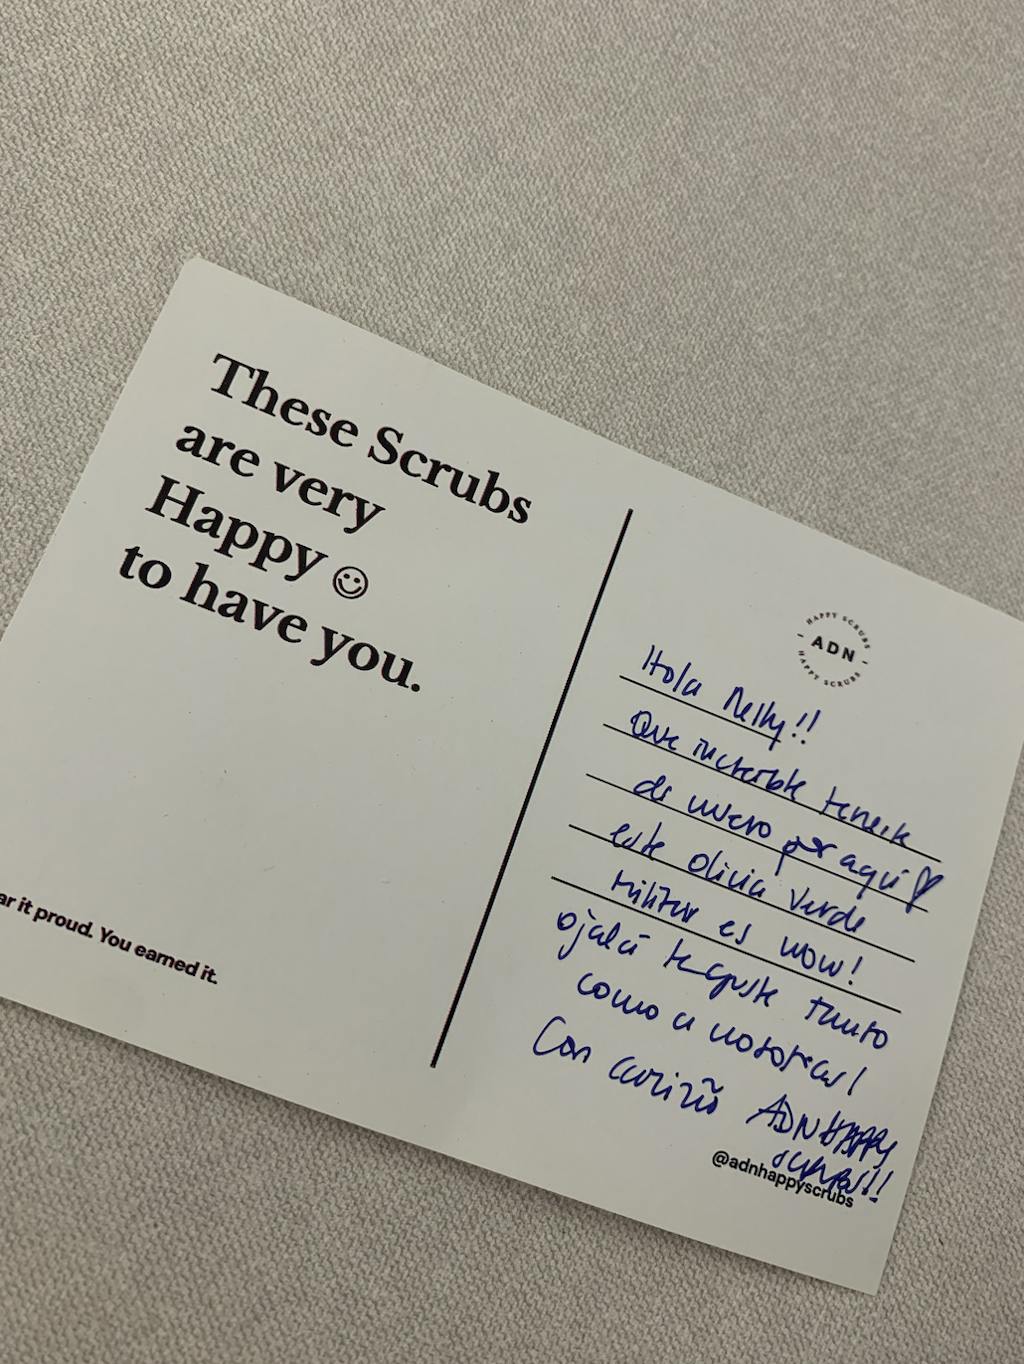 These Scrubs
are very
Happy ☺
to have you.
ar it proud. You earned it.
HAPPY SCRUBS
ADN
HAPPY SCRUBS
Hola Nelly!!
Que increible tenerte
de nuevo por aquí ♡
este olivia verde
militar es wow!
ojalá te guste tanto
como a nosotras!
Con cariño ADN HAPPY
scrubs!!
@adnhappyscrubs